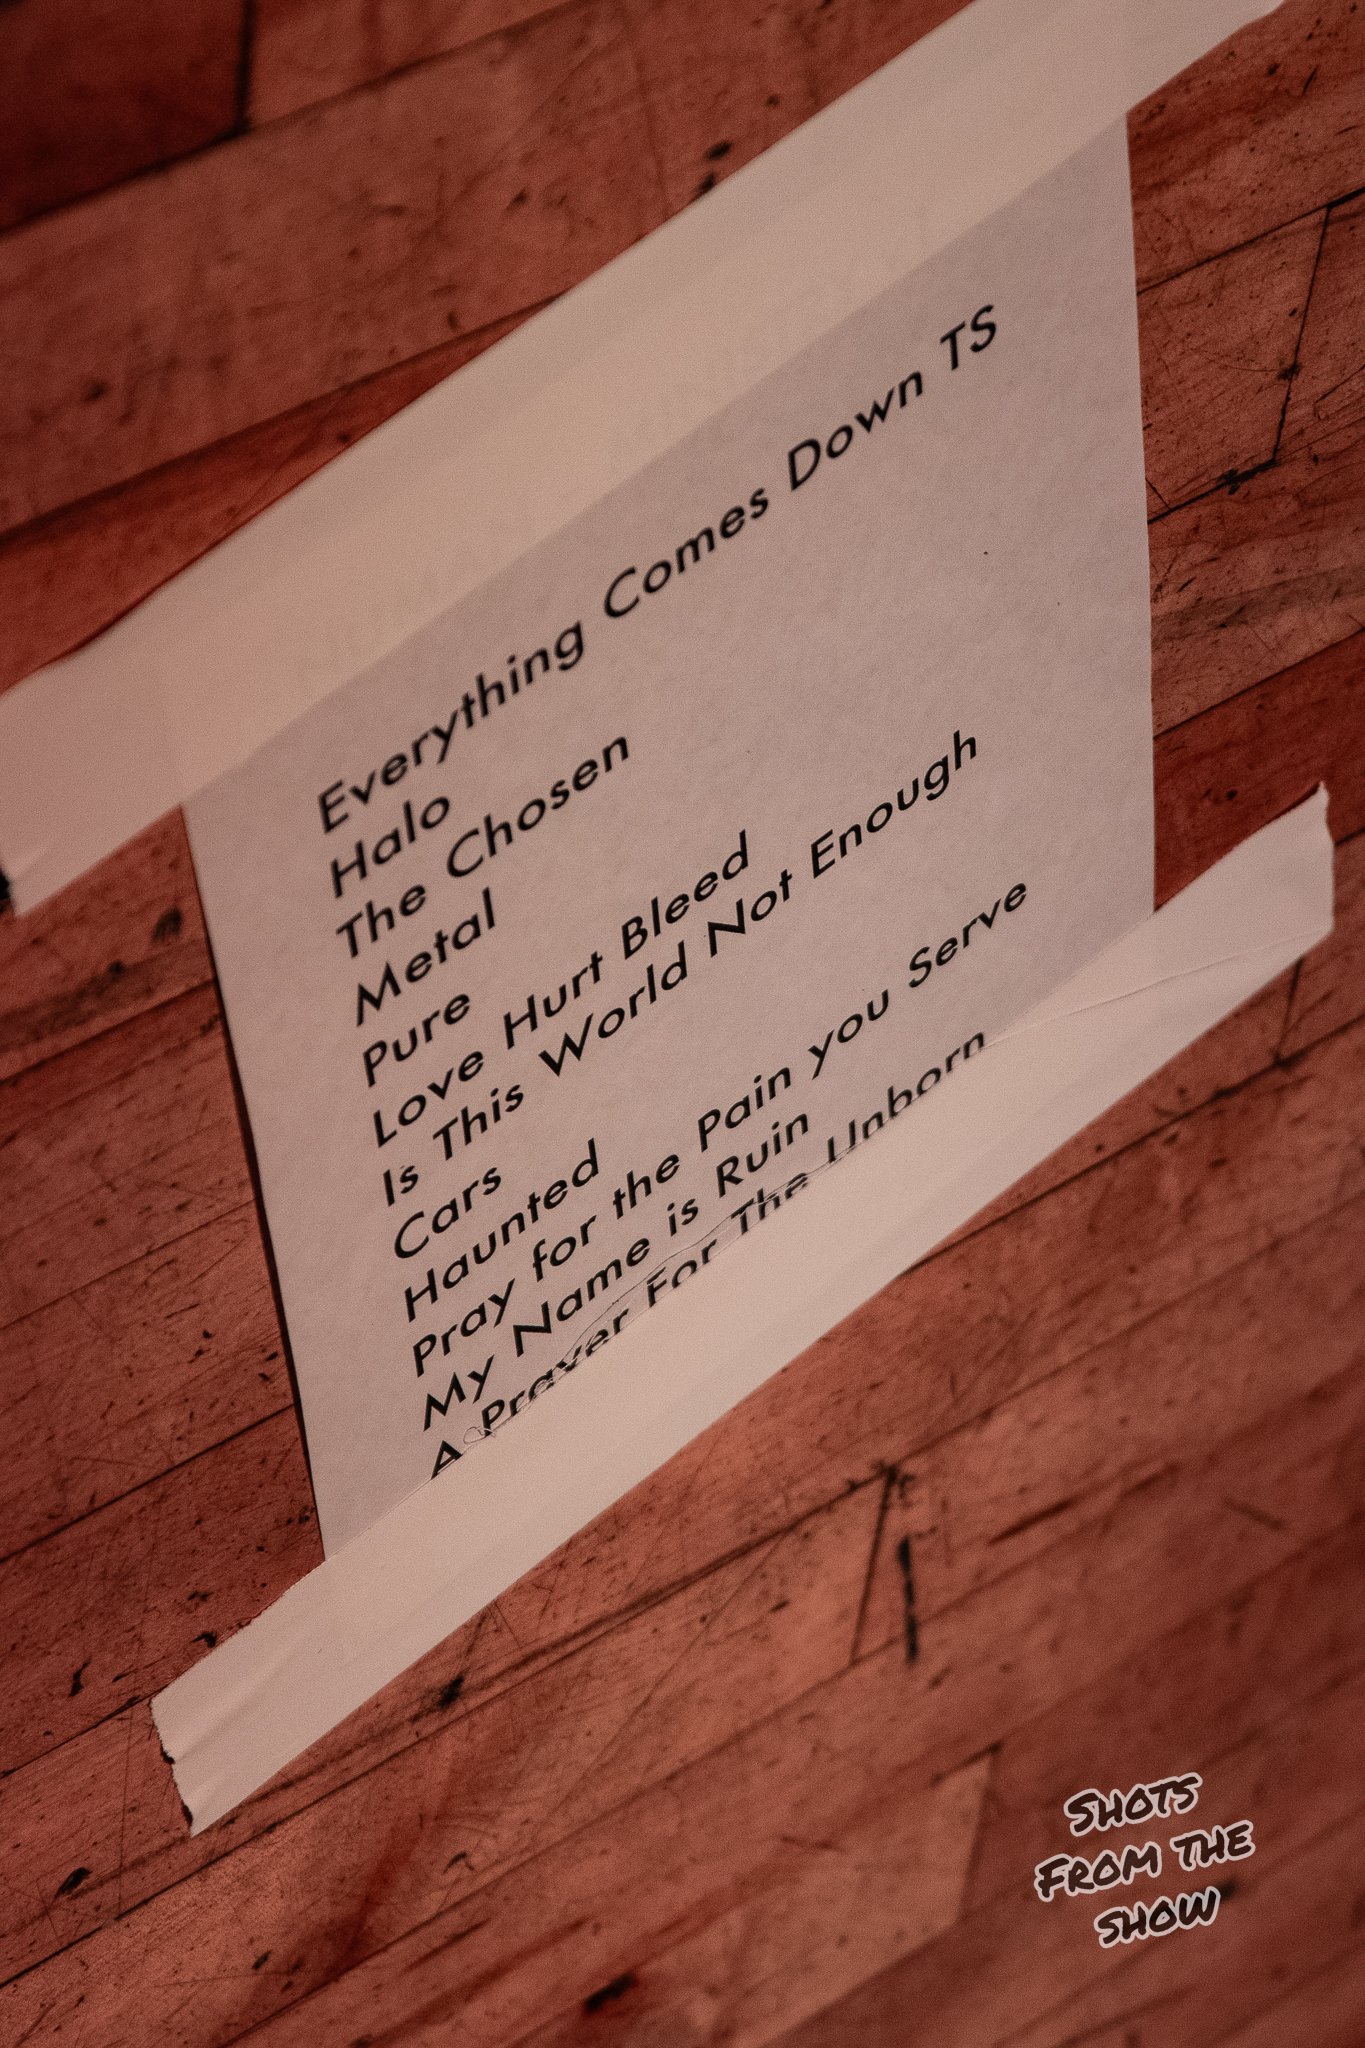 Everything Comes Down TS
Halo
The Chosen
Metal
Pure
Love Hurt Bleed
Is This World Not Enough
Cars
Haunted
Pray for the Pain you Serve
My Name is Ruin
A Prayer For The Unborn
Shots
From the
show